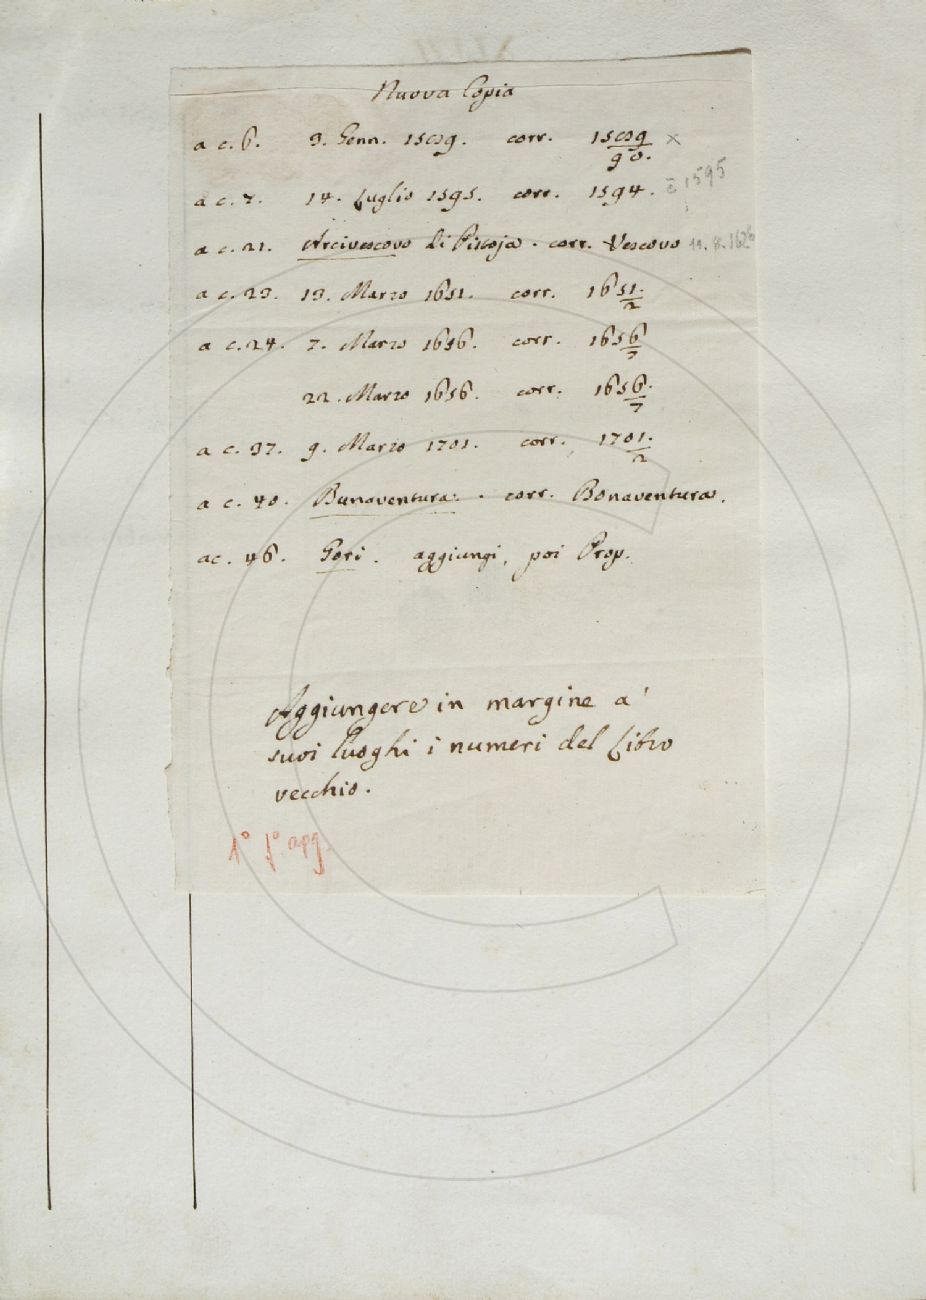 Nuova Copia
a c. 6. 3. Genn. 1589. corr. 1589/90. x
a c. 7. 14. Luglio 1595. corr. 1594. è 1595
a c. 21. Arcivescovo di Pistoja. corr. Vescovo 11.8.1626
a c. 23. 13. Marzo 1651. corr. 1651./2
a c. 24. 7. Marzo 1656. corr. 1656/7
22. Marzo 1656. corr. 1656./7
a c. 37. 9. Marzo 1701. corr. 1701./2
a c. 40. Bunaventura. corr. Bonaventura.
a c. 46. Gori. aggiungi, poi Prop.
Aggiungere in margine a'
suoi luoghi i numeri del Libro
vecchio.